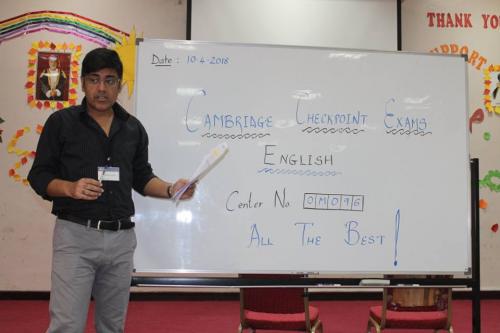 THANK YOU
SUPPORT
Date : 10-4-2018
CAMBRIDGE CHECKPOINT EXAMS
ENGLISH
Center No. 0M096
ALL THE BEST!